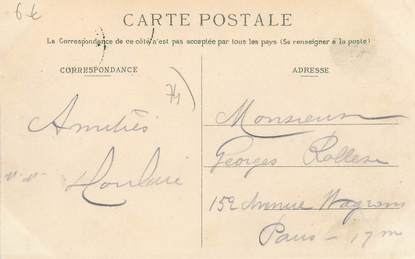 6€
CARTE POSTALE
La Correspondance de ce côté n'est pas acceptée par tous les pays (Se renseigner à la poste)
CORRESPONDANCE
ADRESSE
74
Amitiés
Monsieur
Georges
159 Avenue Wagram
Paris - 17 m